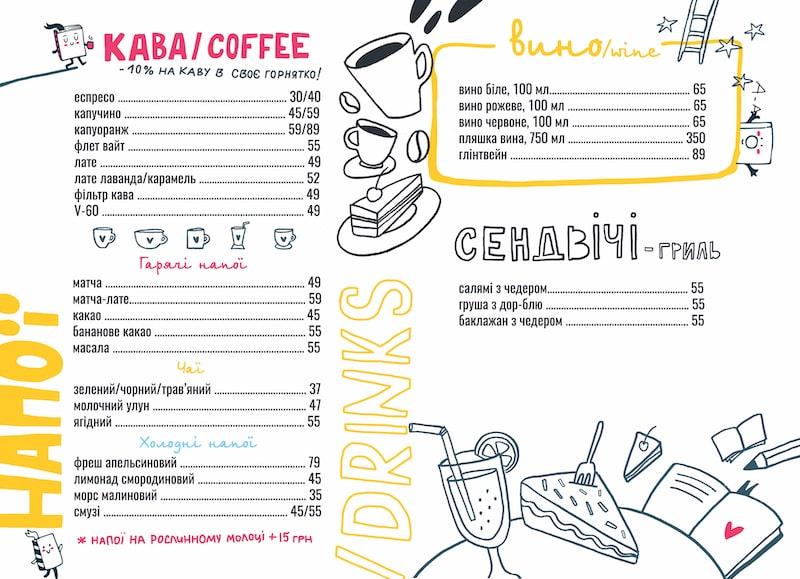 НАПОЇ
/DRINKS
КАВА/COFFEE
-10% НА КАВУ В СВОЄ ГОРНЯТКО!
еспресо 30/40
капучино 45/59
капуоранж 59/89
флет вайт 55
лате 49
лате лаванда/карамель 52
фільтр кава 49
V-60 49
Гарячі напої
матча 49
матча-лате 59
какао 45
бананове какао 55
масала 55
Чаї
зелений/чорний/трав'яний 37
молочний улун 47
ягідний 55
Холодні напої
фреш апельсиновий 79
лимонад смородиновий 45
морс малиновий 35
смузі 45/55
* НАПОЇ НА РОСЛИННОМУ МОЛОЦІ +15 ГРН
вино/wine
вино біле, 100 мл 65
вино рожеве, 100 мл 65
вино червоне, 100 мл 65
пляшка вина, 750 мл 350
глінтвейн 89
СЕНДВІЧІ-ГРИЛЬ
салямі з чедером 55
груша з дор-блю 55
баклажан з чедером 55